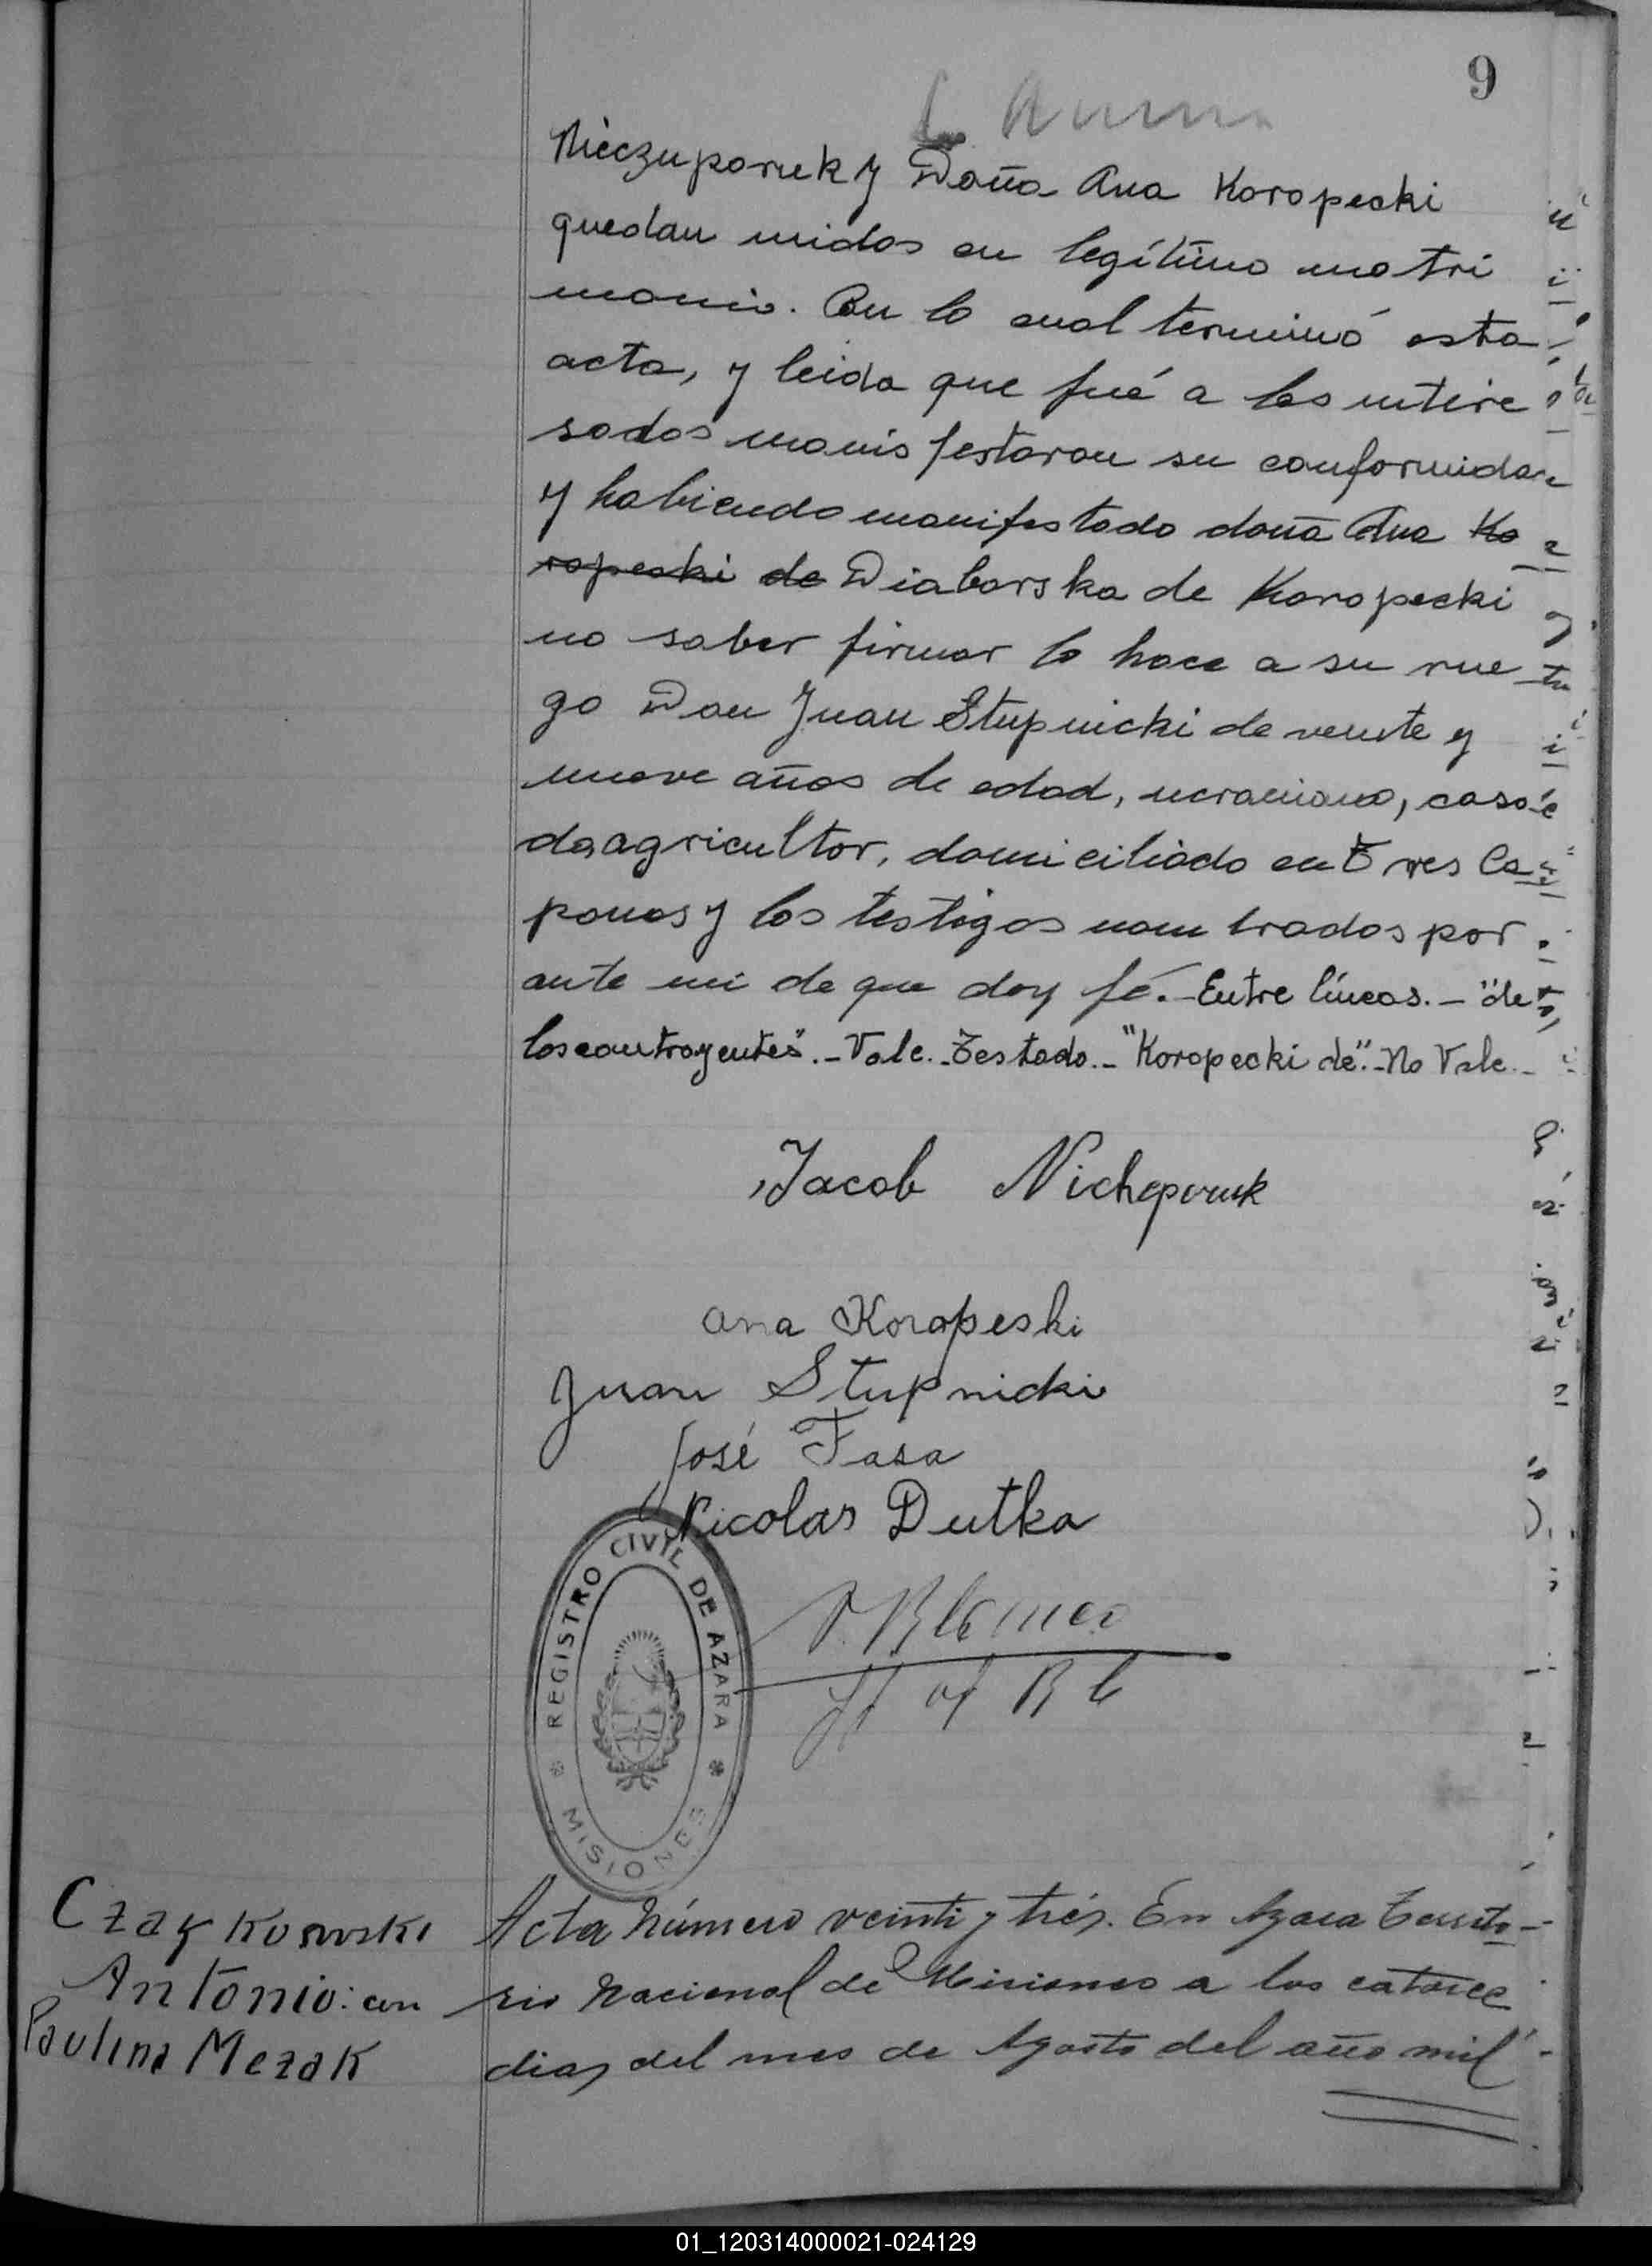 9
Nieczuporuk y Doña Ana Koropecki
quedan unidos en legítimo matri
monio. Con lo cual terminó esta
acta, y leida que fué a los intere
sados manifestaron su conformidad
y habiendo manifestado doña Ana Ko
ropecki de Diaborska de Koropecki
no saber firmar lo hace a su rue
go Don Juan Stupnicki de veinte y
nueve años de edad, ucraniano, casa
do, agricultor, domiciliado en Tres Ca
pones y los testigos nombrados por
ante mi de que doy fé.- Entre líneas.- "de
los contrayentes".- Vale.- Testado.- "Koropecki de".- No Vale.-
Jacob Nicheporuk
Ana Koropeski
Juan Stupnicki
José Fasa
Nicolas Dutka
REGISTRO CIVIL DE AZARA
MISIONES
Czaykowski
Antonio: con
Paulina Mezak
Acta Número veinti y trés. En Azara Territo-
rio Nacional de Misiones a los catorce
dias del mes de Agosto del año mil
01_120314000021-024129